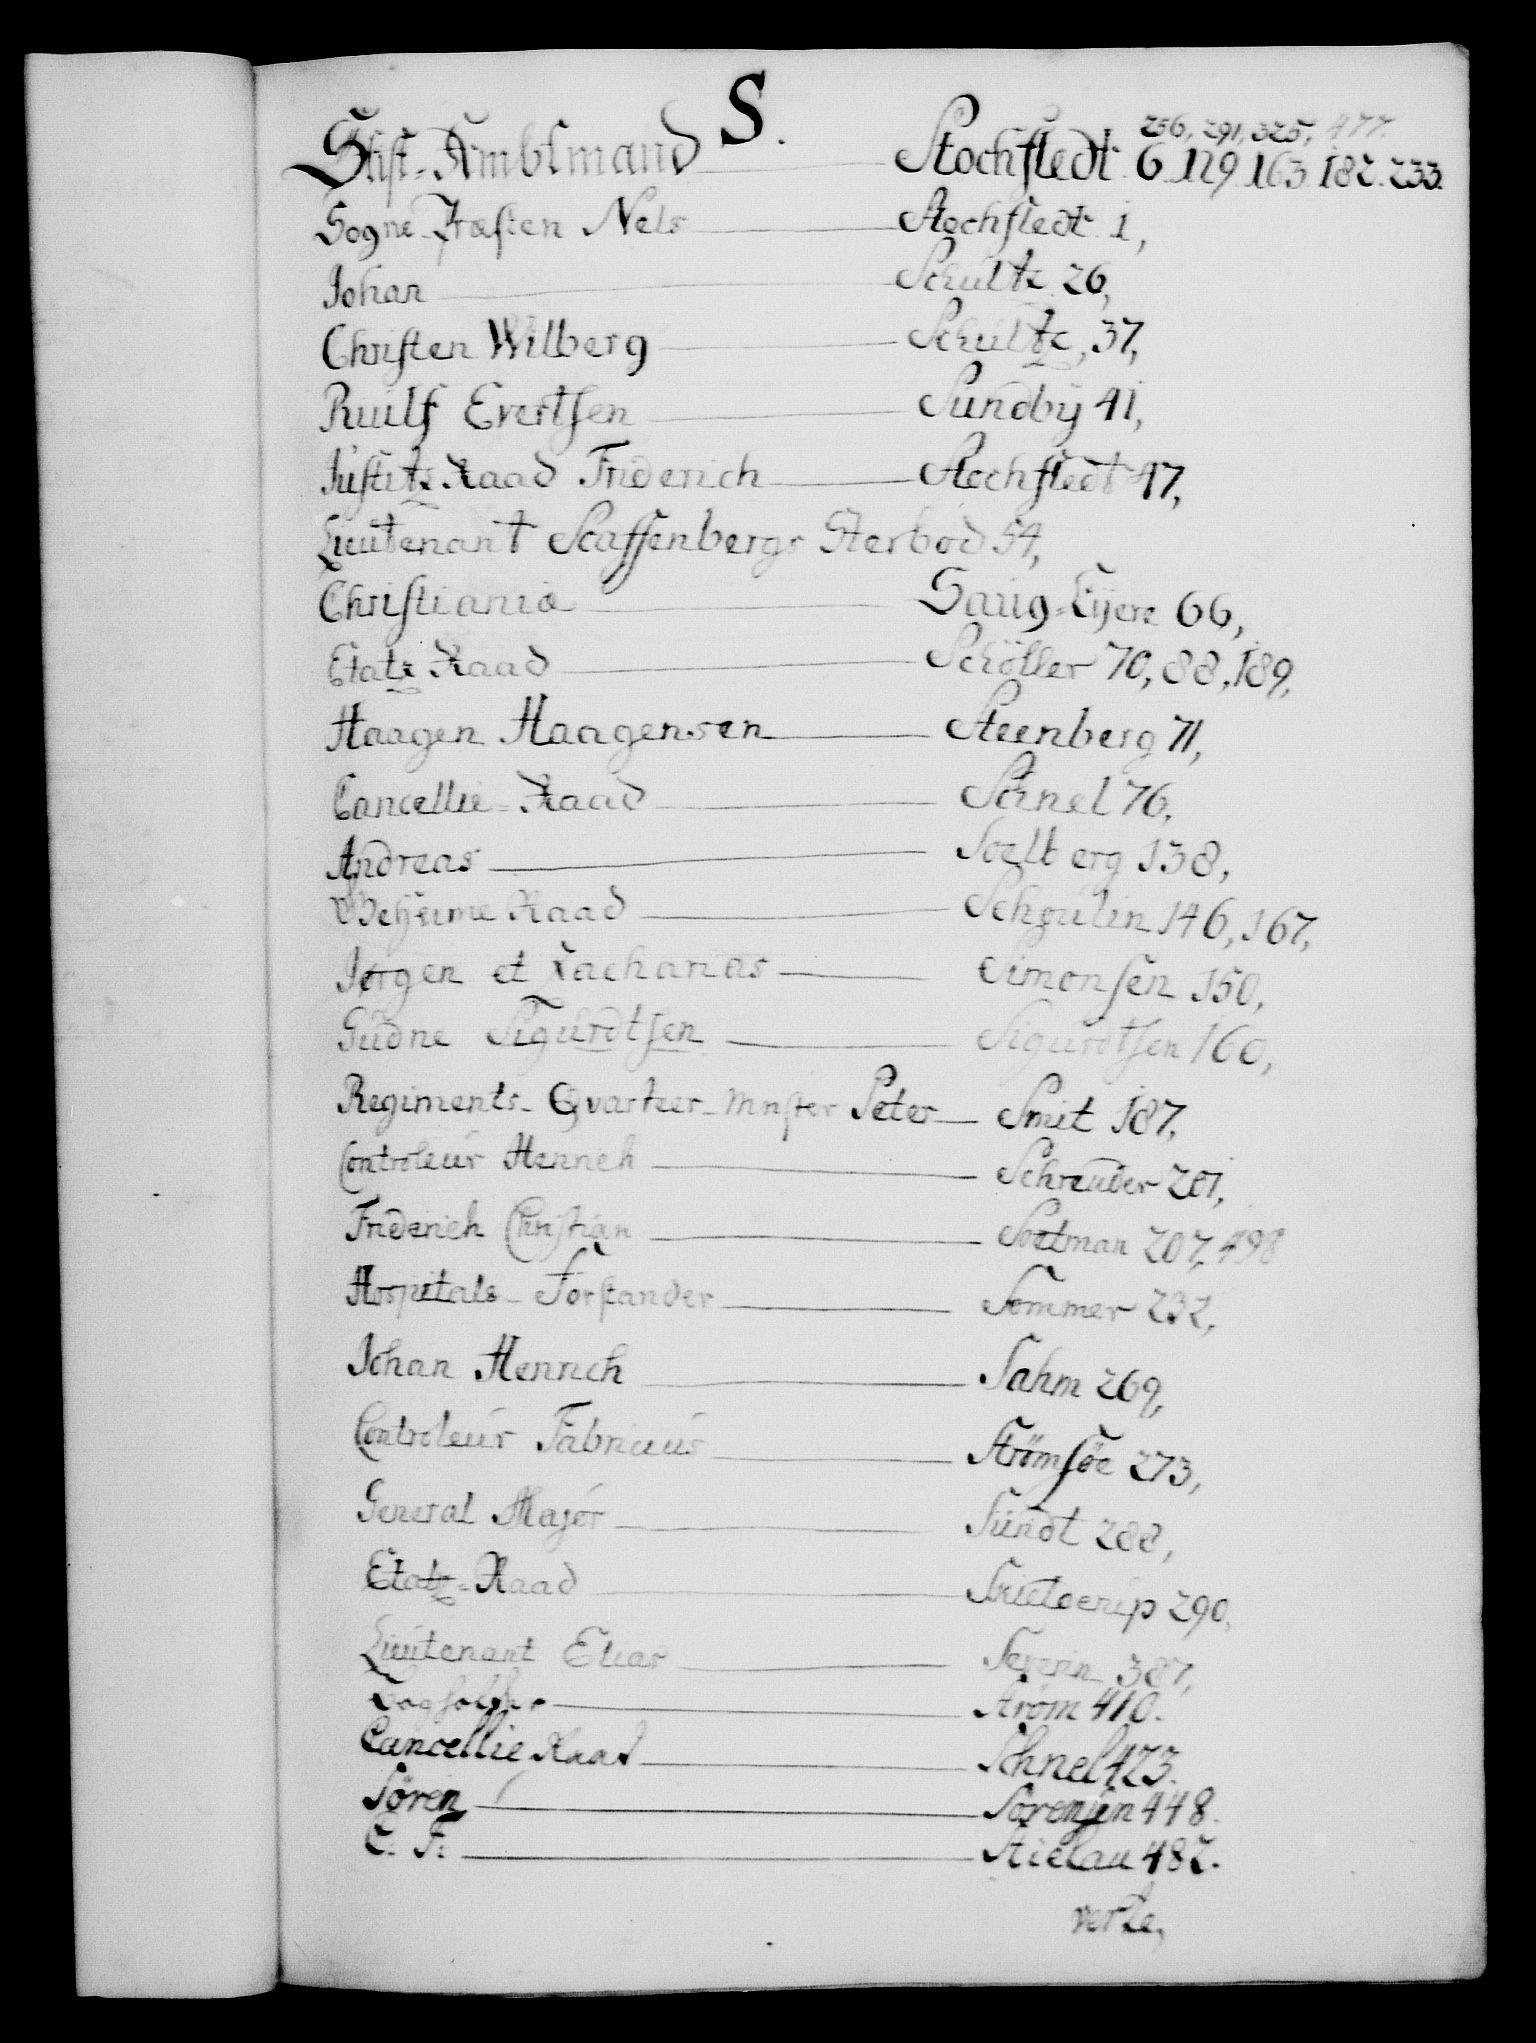 S.
256, 291, 325, 477.
Stift-Ambtmand Stochfledt 6. 129. 163. 182. 233.
Sogne-Præsten Nels Stochfledt 1,
Johan Schultz 26,
Christen Wilberg Schultz, 37,
Ruulf Evertsen Sundby 41,
Justitz Raad Friderich Stochfledt 47,
Lieutenant Scaffenbergs Sterbod 54,
Christiania Saug-Eyere 66,
Etatz Raad Schöller 70, 88, 189,
Haagen Haagensen Steenberg 71,
Cancellie-Raad Schnel 76,
Andreas Soelberg 138,
Geheime Raad Schoulin 146, 167,
Jørgen et Zacharias Simonsen 150,
Gudne Sigurdtsen Sigurdtsen 160,
Regiments-Qvarteer-Mester Peter Smit 187,
Controleur Henrich Schreuder 201,
Friderich Christian Soetman 207, 498
Hospitals-Forstander Sommer 232,
Johan Henrich Sahm 269,
Controleur Fabricius Strömsöe 273,
General Major Sundt 288,
Etatz-Raad Schieldcrup 290,
Lieutenant Elias Severin 387,
Strøm 410.
Cancellie Raad Schnel 423.
Sören Sörensen 448.
C: F: Stielau 482.
verte,